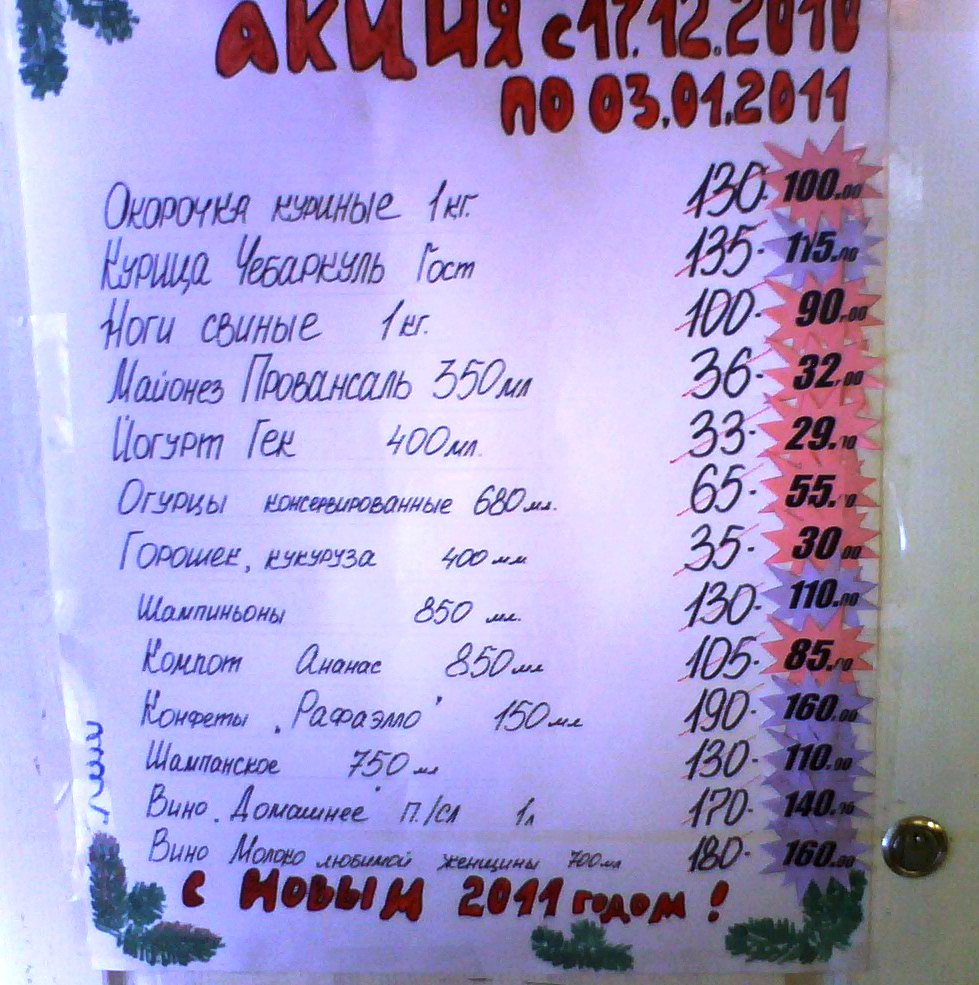 АКЦИЯ с 17.12.2010
ПО 03.01.2011
Окорочка куриные 1кг. 130- 100.00
Курица Чебаркуль Гост 135- 115.00
Ноги свиные 1кг. 100- 90.00
Майонез Провансаль 350мл 36- 32.00
Йогурт Гек 400мл. 33- 29.00
Огурцы консервированные 680мл. 65- 55.00
Горошек, кукуруза 400мл 35- 30.00
Шампиньоны 850 мл. 130- 110.00
Компот Ананас 850мл 105- 85.00
Конфеты "Рафаэлло" 150мл 190- 160.00
Шампанское 750мл 130- 110.00
Вино "Домашнее" п/сл 1л 170- 140.
Вино Молоко любимой женщины 700мл 180- 160.00
С НОВЫМ 2011 годом!